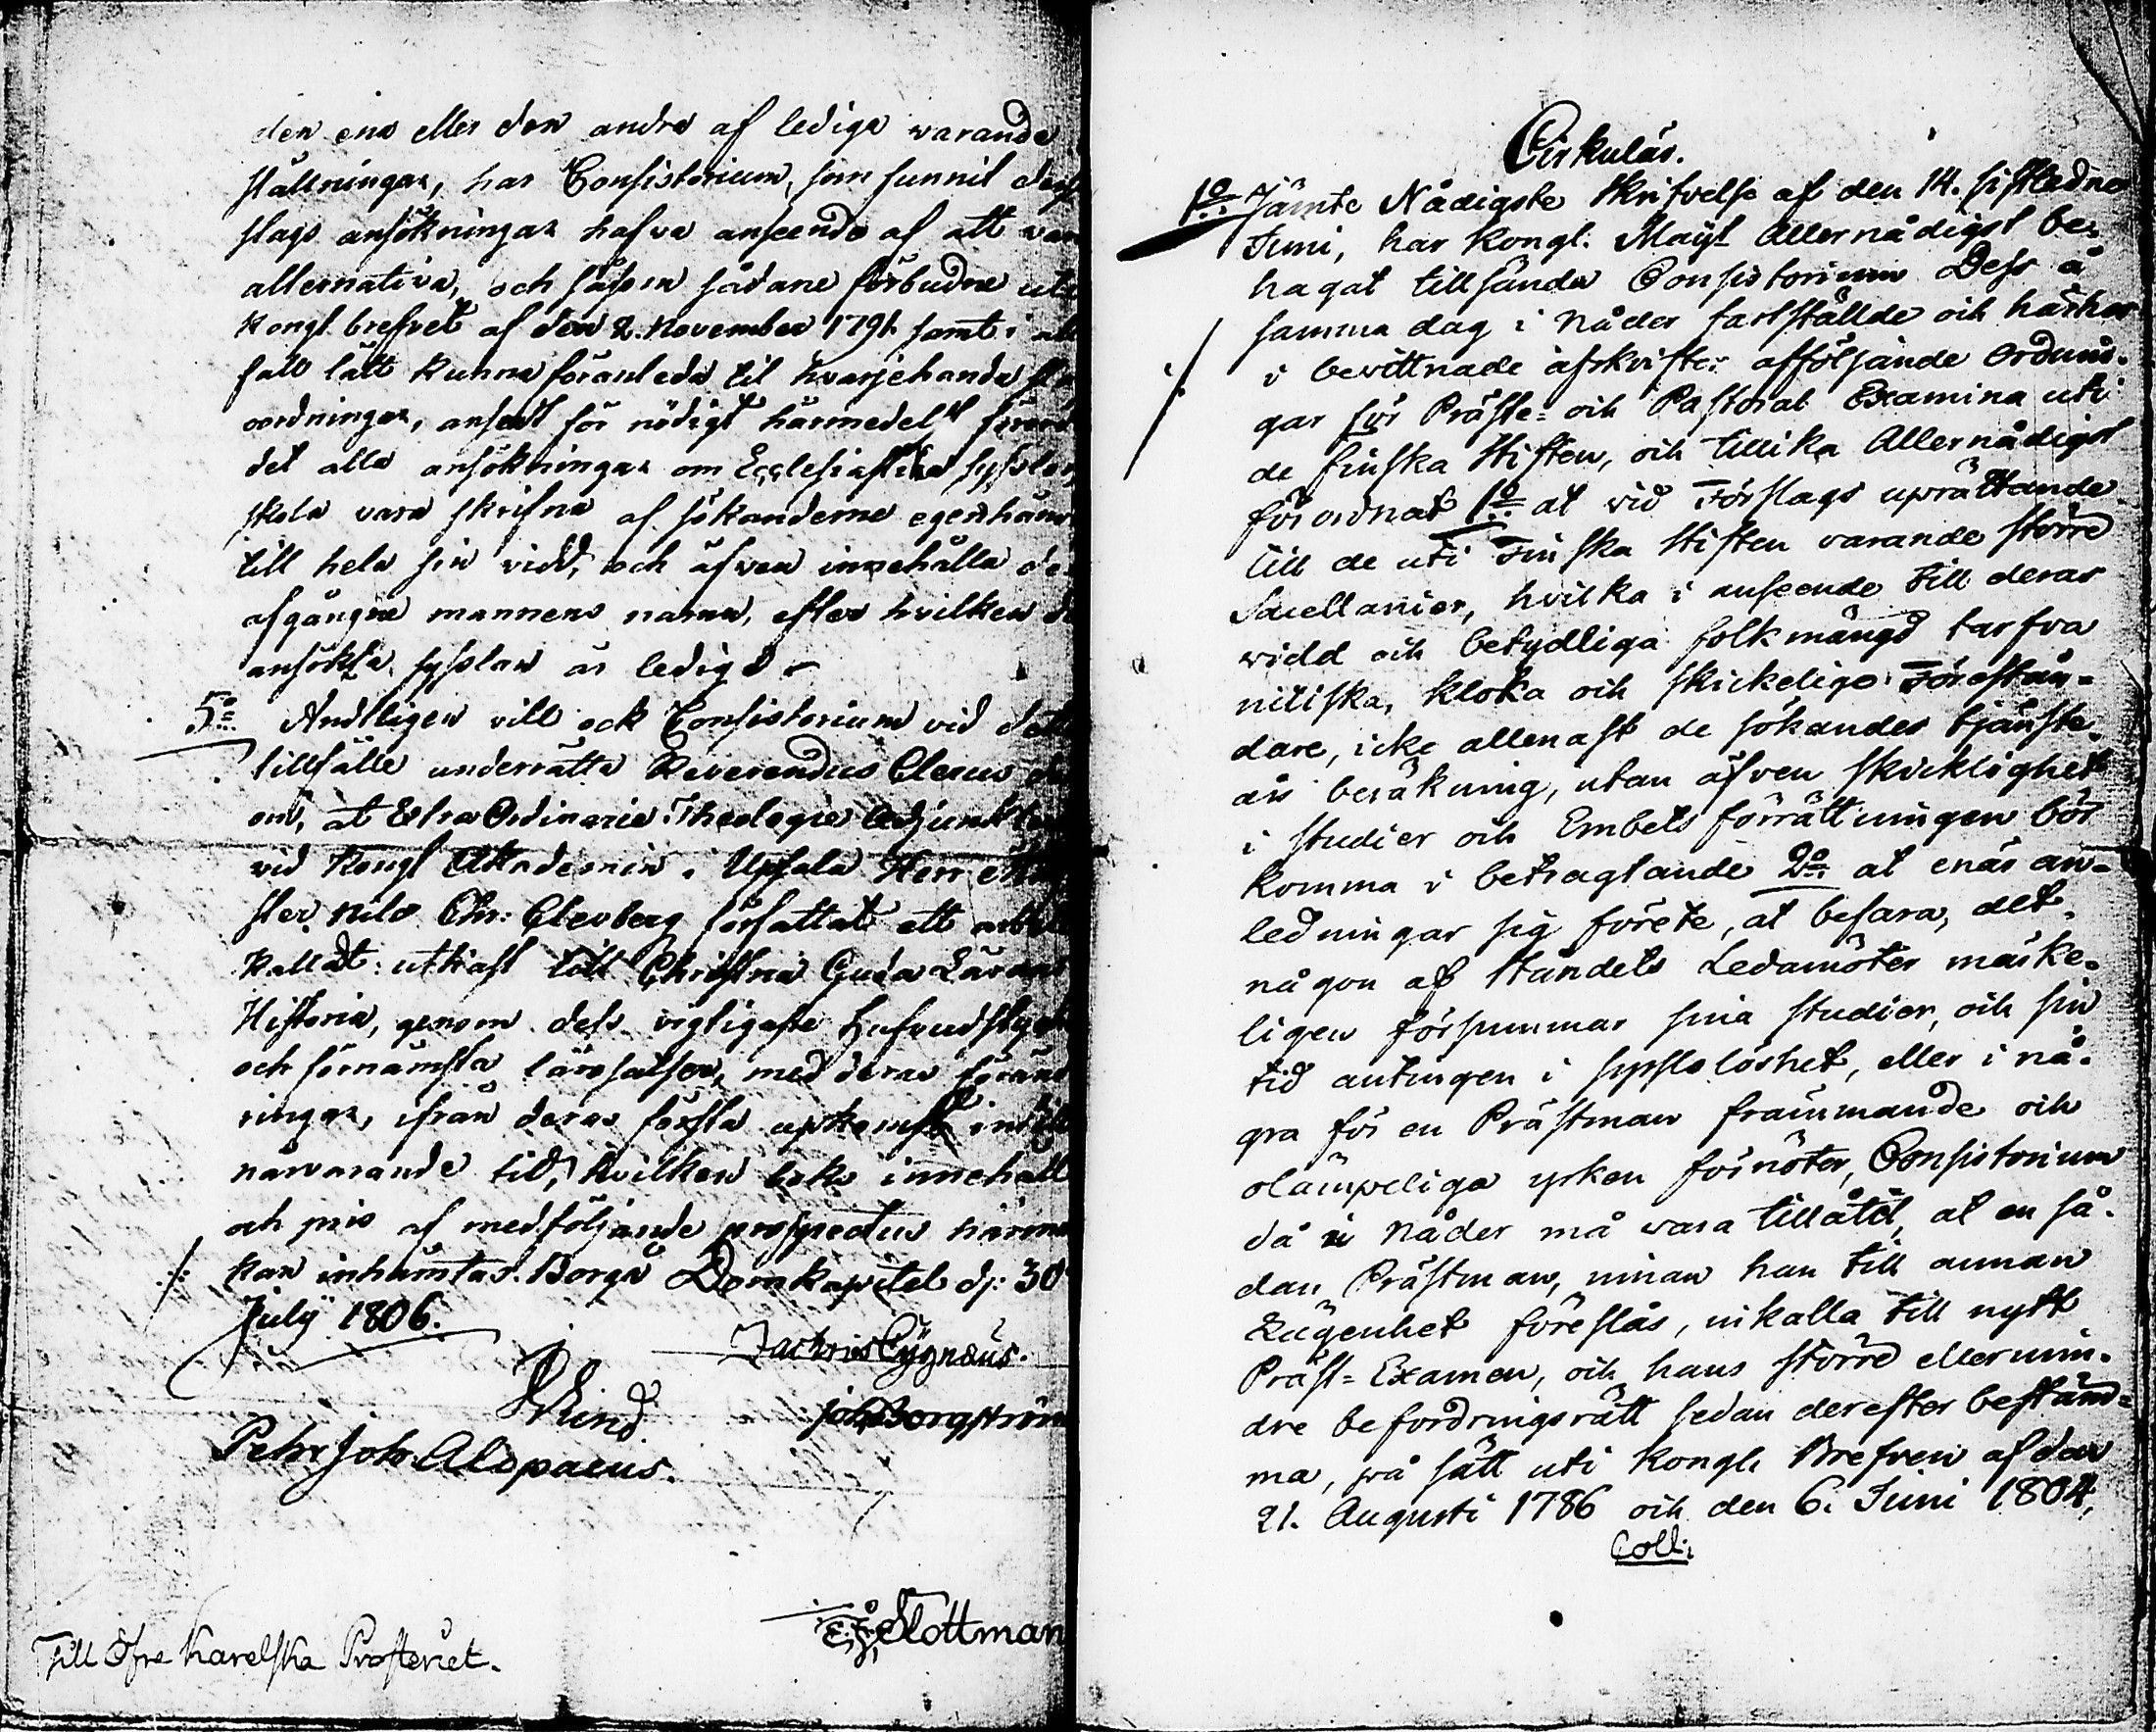 den ena eller den andra af lediga warande
ställningar, har Consistorium, som funnit
slags ansökningar hafva anseende af att
alternativa, och såsom sådane förbudne
Kongl. brefvet af den 2. November 1791. samt i
fall lätt kunna föranleda til hvarjehanda
oordningar, ansedt för nödigt härmedelst
det alla ansökningar om Ecclesiastika
skola vara skrifna af sökanderne
till hela sin vidd, och äfven innehålla
afgångne mannens namn, efter hvilken
ansökta sysslan är ledig.
5o Andtligen vill ock Consistorium vid
tillfälle underrätta Reverendus Clerus
om, at Extra Ordinarie Theologie
vid Kongl Akademin i Upsala Herr
Nils Chr: Clevberg författat ett
kalladt: utkast till Christna Guda
Historia, genom dess vigtigaste
och förnämsta lärosatser, med deras
ringar, ifrån deras första upkomst
närvarande tid, hvilken boks
och pris af medföljande prospectus
kan inhämtas. Borgå Domkapitel d: 30
July 1806.
Zachris Cygnæus.
Joh: Borgström
Pehr Joh. Alopaeus.
Slottman
Till Öfra Karelska Prosteriet.
Cirkulär.
1o Jämte Nådigste Skrifvelse af den 14. sistledne
Juni, har Kongl. Majt Allernådigst be-
hagat tillsända Consistorium Dess å
samma dag i Nåder fastställde och härhos
i bevittnade afskrifter afföljande Ordnin-
gar för Präste- och Pastoral Examina uti
de finska Stiften, och tillika Allernådigst
förordnat 1o at vid Förslags uprättande
till de uti Finska Stiften varande större
Sacellanier, hvilka i anseende till deras
vidd och betydliga folkmängd tarfva
nitiska, kloka och skickelige Förestån-
dare, icke allenast de sökandes tjänste-
års beräkning, utan äfven skicklighet
i studier och Embets förrättningen bör
komma i betragtande 2o at enär an-
ledningar sig förete, at befara, det
någon af Ståndets Ledamöter märke-
ligen försummar sina studier, och sin
tid antingen i sysslolöshet, eller i nå-
gra för en Prästman främmande och
olämpeliga yrken förnöter, Consistorium
då i Nåder må vara tillåtit, at en så-
dan Prästman, innan han till annan
Lägenhet föreslås, inkalla till nytt
Präst-Examen, och hans större eller min-
dre befordringsrätt sedan derefter bestäm-
ma, på sätt uti Kongl. Brefven af den
21. Augusti 1786 och den 6. Juni 1804,
Coll: